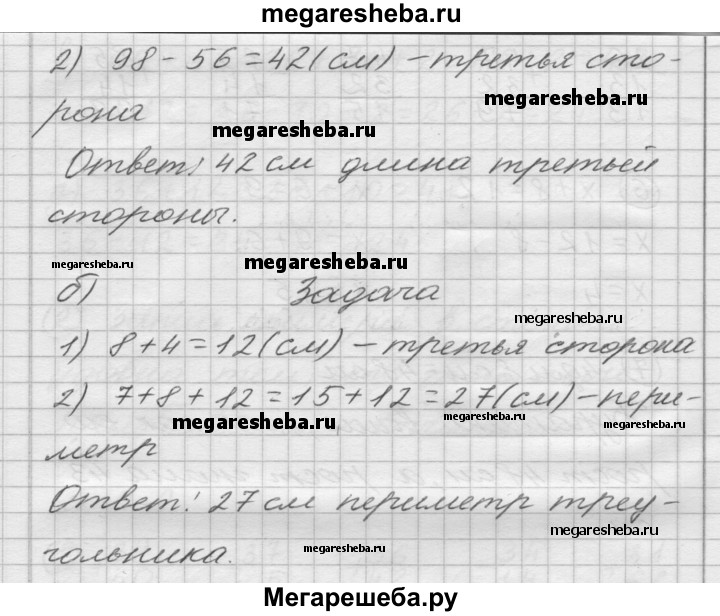 megaresheba.ru
2) 98 - 56 = 42 (см) - третья сто-
megaresheba.ru
рона
megaresheba.ru
Ответ: 42 см длина третьей
стороны.
megaresheba.ru
megaresheba.ru
б) Задача
megaresheba.ru
1) 8 + 4 = 12 (см) - третья сторона
2) 7 + 8 + 12 = 15 + 12 = 27 (см) - пери-
megaresheba.ru
megaresheba.ru
megaresheba.ru
метр
Ответ: 27 см периметр треу-
megaresheba.ru
гольника.
megaresheba.ru
Мегарешеба.ру